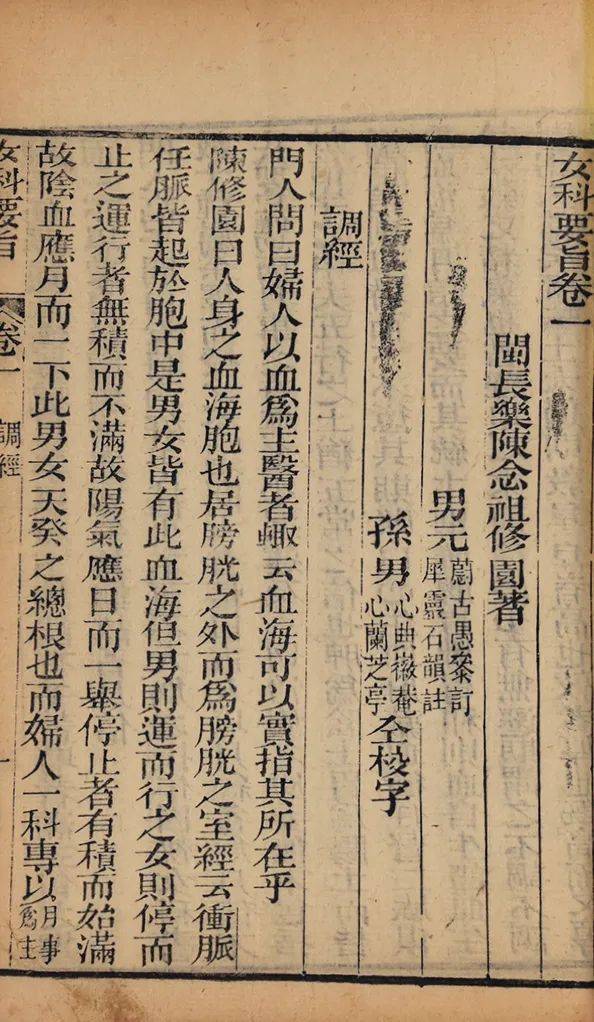 女科要旨卷一
閩長樂陳念祖修園著
男元
蔚古愚叅訂
犀靈石韻註
孫男
心典徽菴
心蘭芝亭
仝校字
調經
門人問曰婦人以血爲主醫者輒云血海可以實指其所在乎
陳修園曰人身之血海胞也居膀胱之外而爲膀胱之室經云衝脈
任脈皆起於胞中是男女皆有此血海但男則運而行之女則停而
止之運行者無積而不滿故陽氣應日而一舉停止者有積而始滿
故陰血應月而一下此男女天癸之總根也而婦人一科專以
月事
爲主
女科要旨
卷一
調經
一